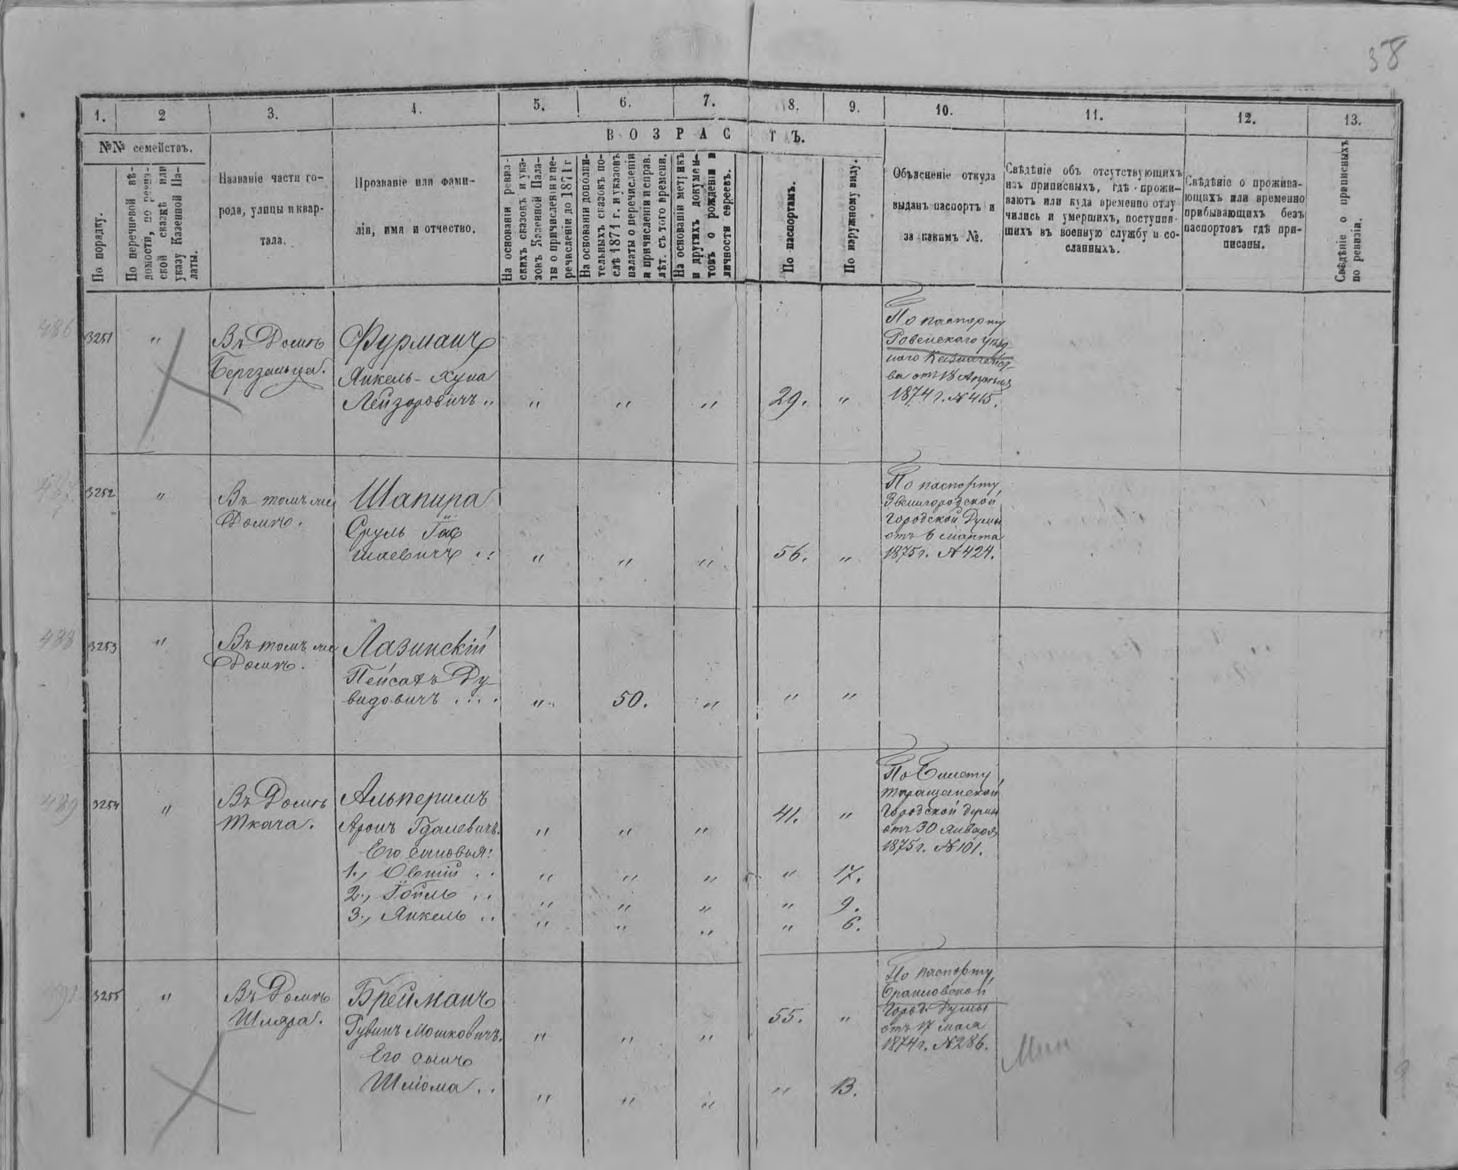 38
1. 2 3. 4. 5. 6. 7. 8. 9. 10. 11. 12. 13.
№№ семействъ.
По порядку.
По перечневой вѣ-
домости, по ревиз-
ской сказкѣ или
указу Казенной Па-
латы.
Названіе части го-
рода, улицы и квар-
тала.
Прозваніе или фами-
лія, имя и отчество.
ВОЗРАСТЪ.
На основаніи ревиз-
скихъ сказокъ и ука-
зовъ Казенной Пала-
ты о причисленіи и пе-
речисленіи до 1871 г
На основаніи дополни-
тельныхъ сказокъ по-
слѣ 1871 г. и указовъ
палаты о перечисленіи
и причисленіи и справ.
лѣт. съ того времени.
На основаніи метрикъ
и другихъ докумен-
товъ о рожденіи и
личности евреевъ.
По паспортамъ.
По наружному виду.
Объясненіе откуда
выданъ паспортъ и
за какимъ №.
Свѣдѣніе объ отсутствующихъ
изъ приписныхъ, гдѣ прожи-
ваютъ или куда временно отлу-
чились и умершихъ, поступив-
шихъ въ военную службу и со-
сланныхъ.
Свѣдѣніе о прожива-
ющихъ или временно
прибывающихъ безъ
паспортовъ гдѣ при-
писаны.
Свѣдѣніе о приписныхъ
по ревизіи.
486 3251 " Въ Домѣ
Фурманъ
Янкель-Хуна
Лейзоровичъ " " " " 29. "
По паспорту
Ровенскаго уѣзд
наго Казначейст
ва отъ 18 Апрѣля
1874 г. №415.
3252 " Въ томъ же
Домѣ.
Шапира
Сруль
" " " 56. "
По паспорту
Звенигородской
городской Думы
отъ 6 марта
1875 г. №424.
488 3253 " Въ томъ же
Домѣ.
Лазинскій
Пейсахъ Ду-
видовичъ .... " 50. " " "
489 3254 " Въ Домѣ
Ткача.
Альперинъ
Аронъ Гдалевичъ. " " " 41. "
Его сыновья:
1., Овшій .. " " " " 17.
2., .. " " " " 9.
3., Янкель .. " " " " 6.
По билету
таращанской
городской думы
отъ 30 Января
1875 г. №101.
3255 " Въ Домѣ
Шляра.
Брейманъ
Рувинъ Мошковичъ. " " " 55. "
Его сынъ
Шліома .. " " " " 13.
По паспорту
Брацловской
Город. Думы
отъ 17 мая
1874 г. №286.